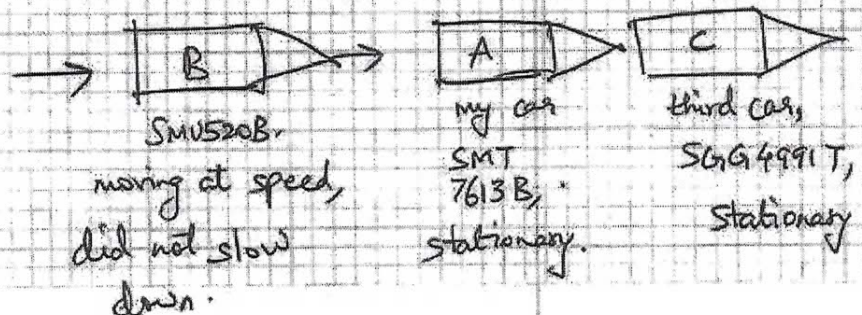 B
SMU520B.
moving at speed,
did not slow
down.
A
my car
SMT
7613B,
stationary.
C
third car,
SGG4991T,
Stationary